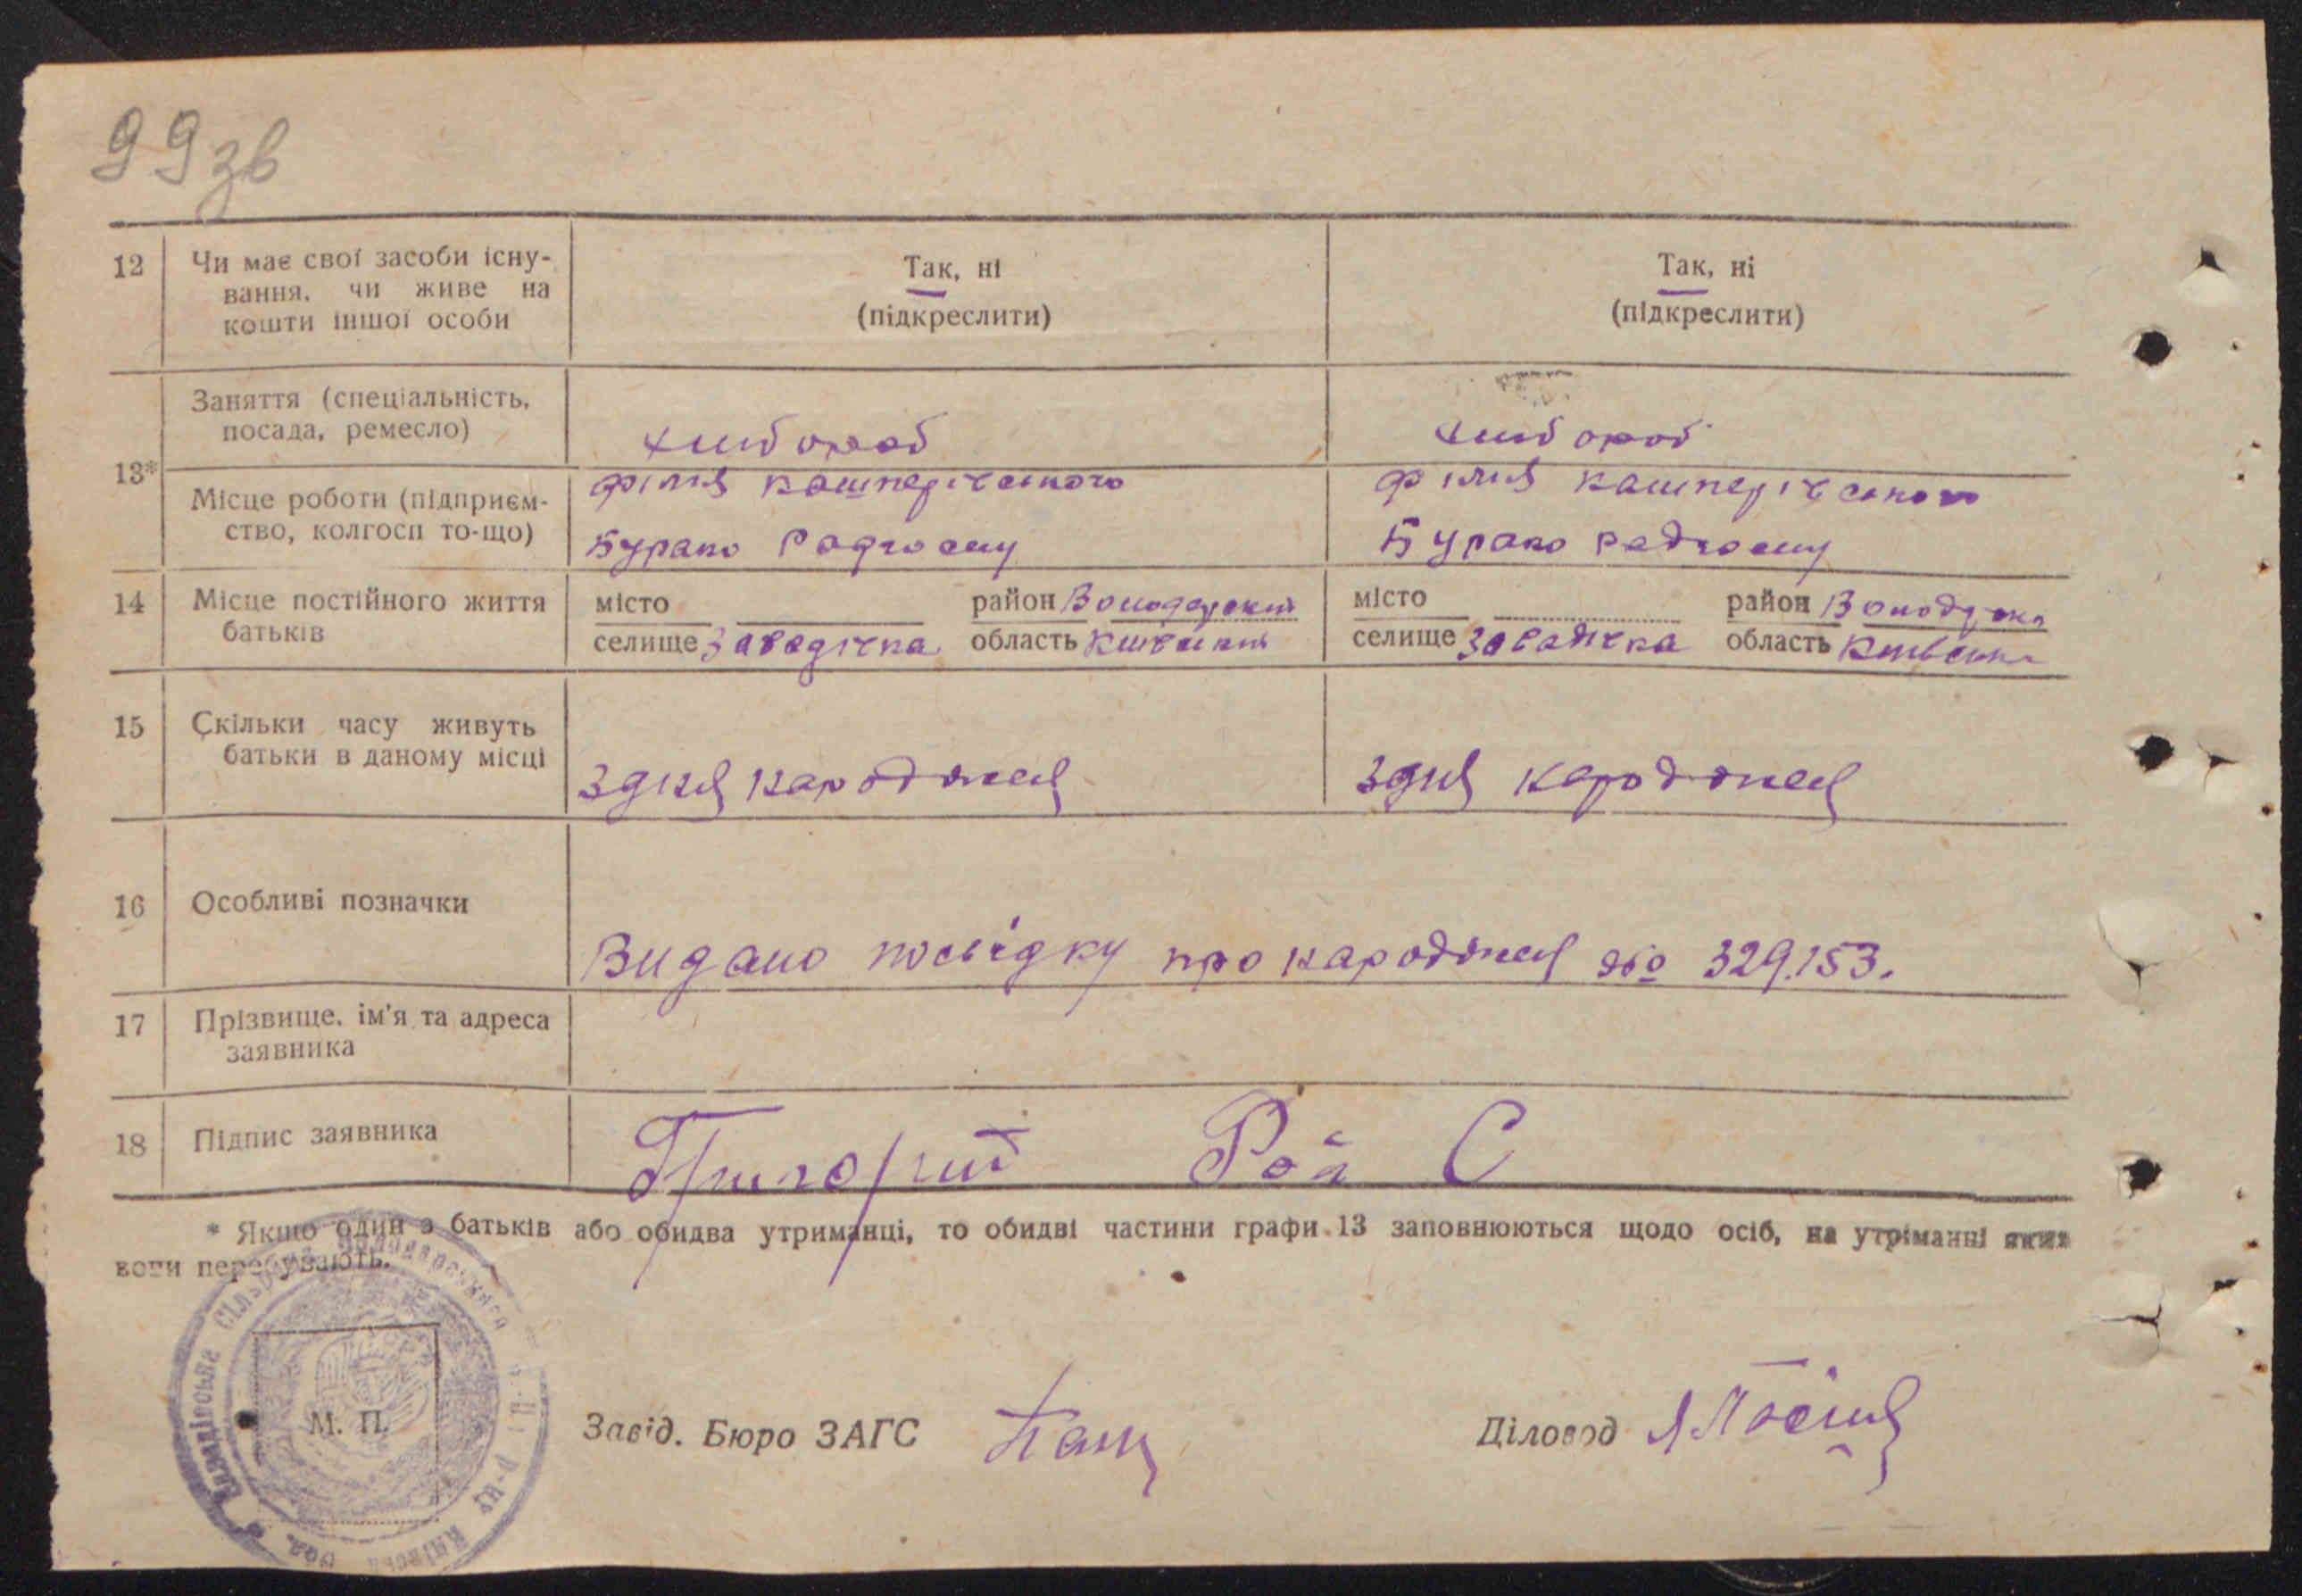 99 зв
12 Чи має свої засоби існу-
вання, чи живе на
кошти іншої особи
Так, ні
(підкреслити)
Так, ні
(підкреслити)
13*
Заняття (спеціальність,
посада, ремесло)
хлібороб
хлібороб
Місце роботи (підприєм-
ство, колгосп то-що)
філія кашперівського
Бурако Радгоспу
філія кашперівського
Бурако радгоспу
14 Місце постійного життя
батьків
місто район Володарский
селище Завадівка область Київский
місто район Володарска
селище Завадівка область Київська
15 Скільки часу живуть
батьки в даному місці
з дня народженя
з дня народженя
16 Особливі позначки
Видано посвідку про народженя № 329.153.
17 Прізвище, ім'я та адреса
заявника
18 Підпис заявника
Григорий Рой С
* Якщо один з батьків або обидва утриманці, то обидві частини графи 13 заповнюються щодо осіб, на утріманні яких
вони перебувають.
М. П.
Завід. Бюро ЗАГС
Діловод